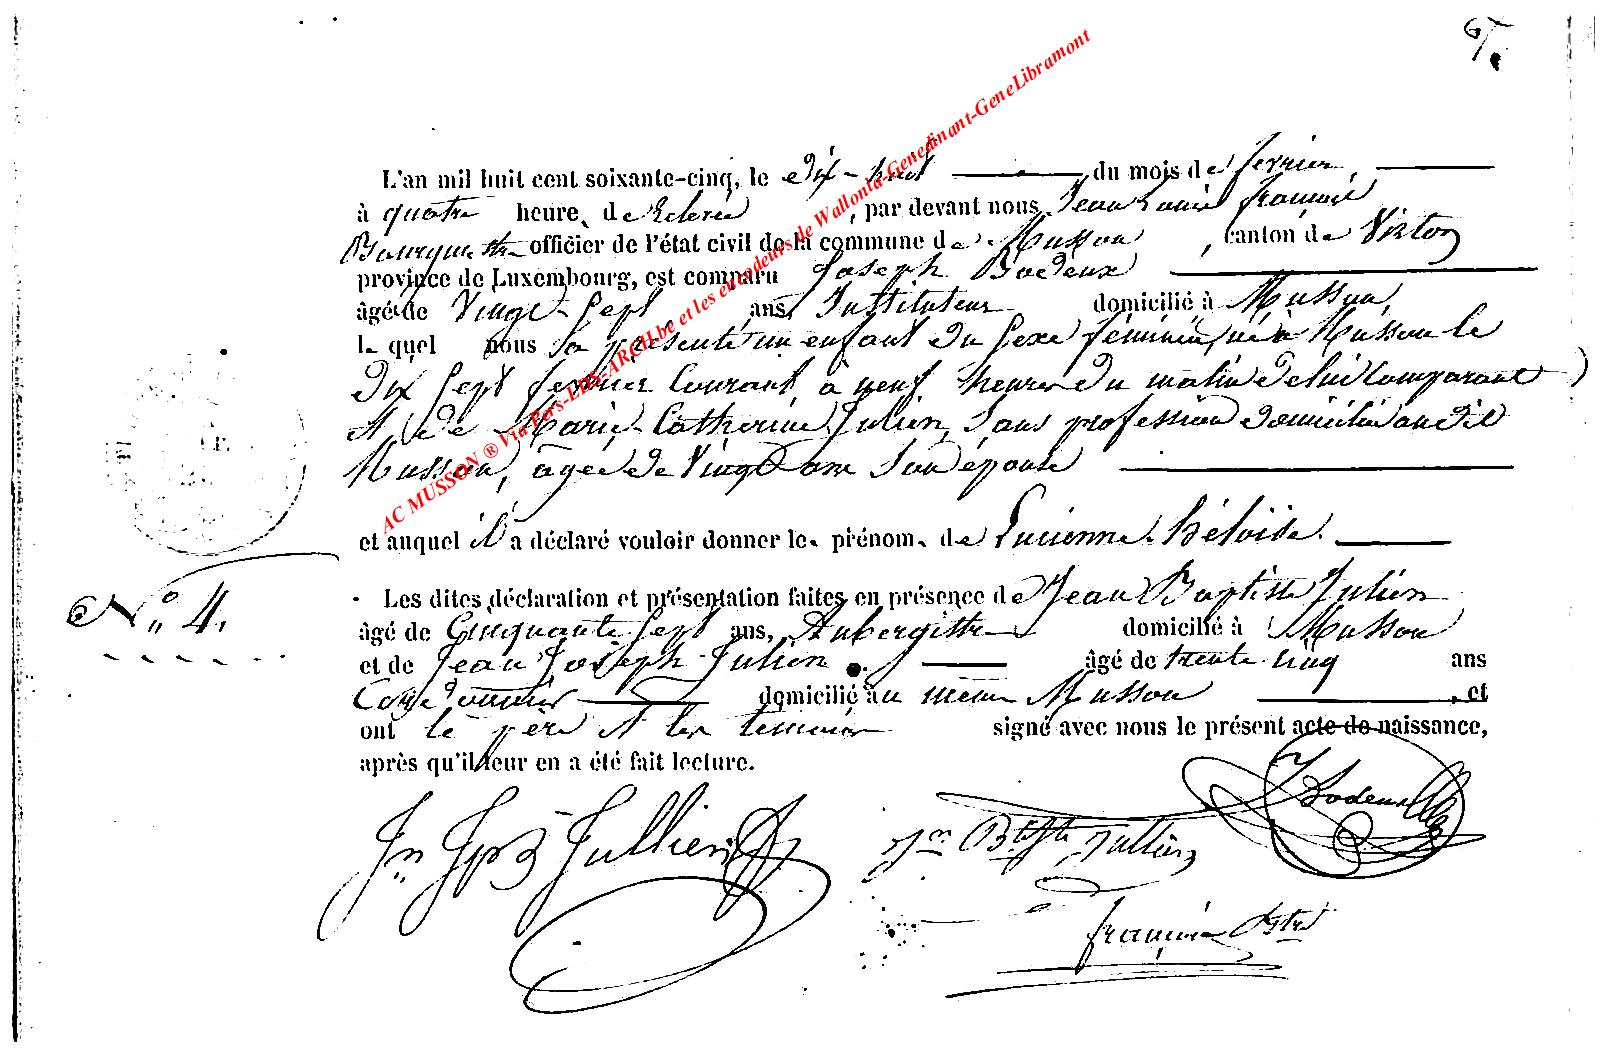 L'an mil huit cent soixante-cinq, le dix-huit du mois de février,
à quatre heure, de relevée, par devant nous Jean Louis François
Bourgmestre officier de l'état civil de la commune de Musson, canton de Virton
province de Luxembourg, est comparu Joseph Bodeux
âgé de Vingt-Sept ans, Instituteur domicilié à Musson,
le quel nous a présenté un enfant du sexe féminin, né à Musson le
dix sept février courant, à neuf heures du matin de lui comparant
et de Marie-Catherine Julien, sans profession domiciliée au dit
Musson, agée de Vingt ans son épouse
et auquel il a déclaré vouloir donner le prénom de Lucienne-Héloïde.
N° 4.
Les dites déclaration et présentation faites en présence de Jean Baptiste Julien
âgé de Cinquante Sept ans, Aubergiste domicilié à Musson
et de Jean Joseph Julien âgé de trente cinq ans
Cordonnier domicilié au même Musson, et
ont le père et les témoins signé avec nous le présent acte de naissance,
après qu'il leur en a été fait lecture.
J Bodeux
Jn Jph Jullien
Jn Bte Jullien
François Bstre
AC MUSSON ® Via Pers-EDS-ARCH.be et les encodeurs de Wallonia-Genedinant-GeneLibramont